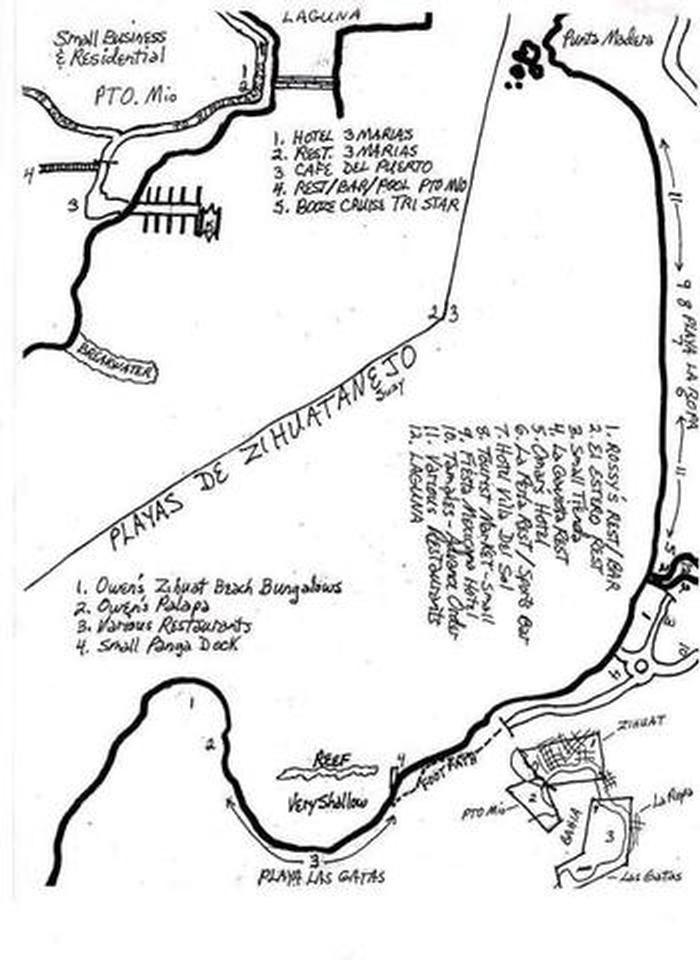 LAGUNA
Small Business
& Residential
PTO. Mio
1
2
4
3
5
1. HOTEL 3 MARIAS
2. REST. 3 MARIAS
3 CAFE DEL PUERTO
4. REST/BAR/POOL PTO MIO
5. BOOZE CRUISE TRI STAR
BREAKWATER
Punta Madera
2 3
PLAYAS DE ZIHUATANEJO
3way
11
9 8 PLAYA LA ROPA
7
6
11
5
1. ROSSY'S REST/BAR
2. EL ESTERO REST
3. Small Tienda
4. La Gaviota REST
5. Omars Hotel
6. La Perla REST/Sports Bar
7. Hotel Villa Del Sol
8. Tourist Market-Small
9. Fiesta Mexicana Hotel
10. Tamales - Advance Order
11. Various Restaurants
12. LAGUNA
1
3
10
4
1. Owen's Zihuat Beach Bungalows
2. Owen's Palapa
3. Various Restaurants
4. Small Panga Dock
1
2
REEF
Very Shallow
4
FOOTPATH
3
PLAYA LAS GATAS
ZIHUAT
PTO Mio
2
BAHIA
3
La Ropa
Las Gatas